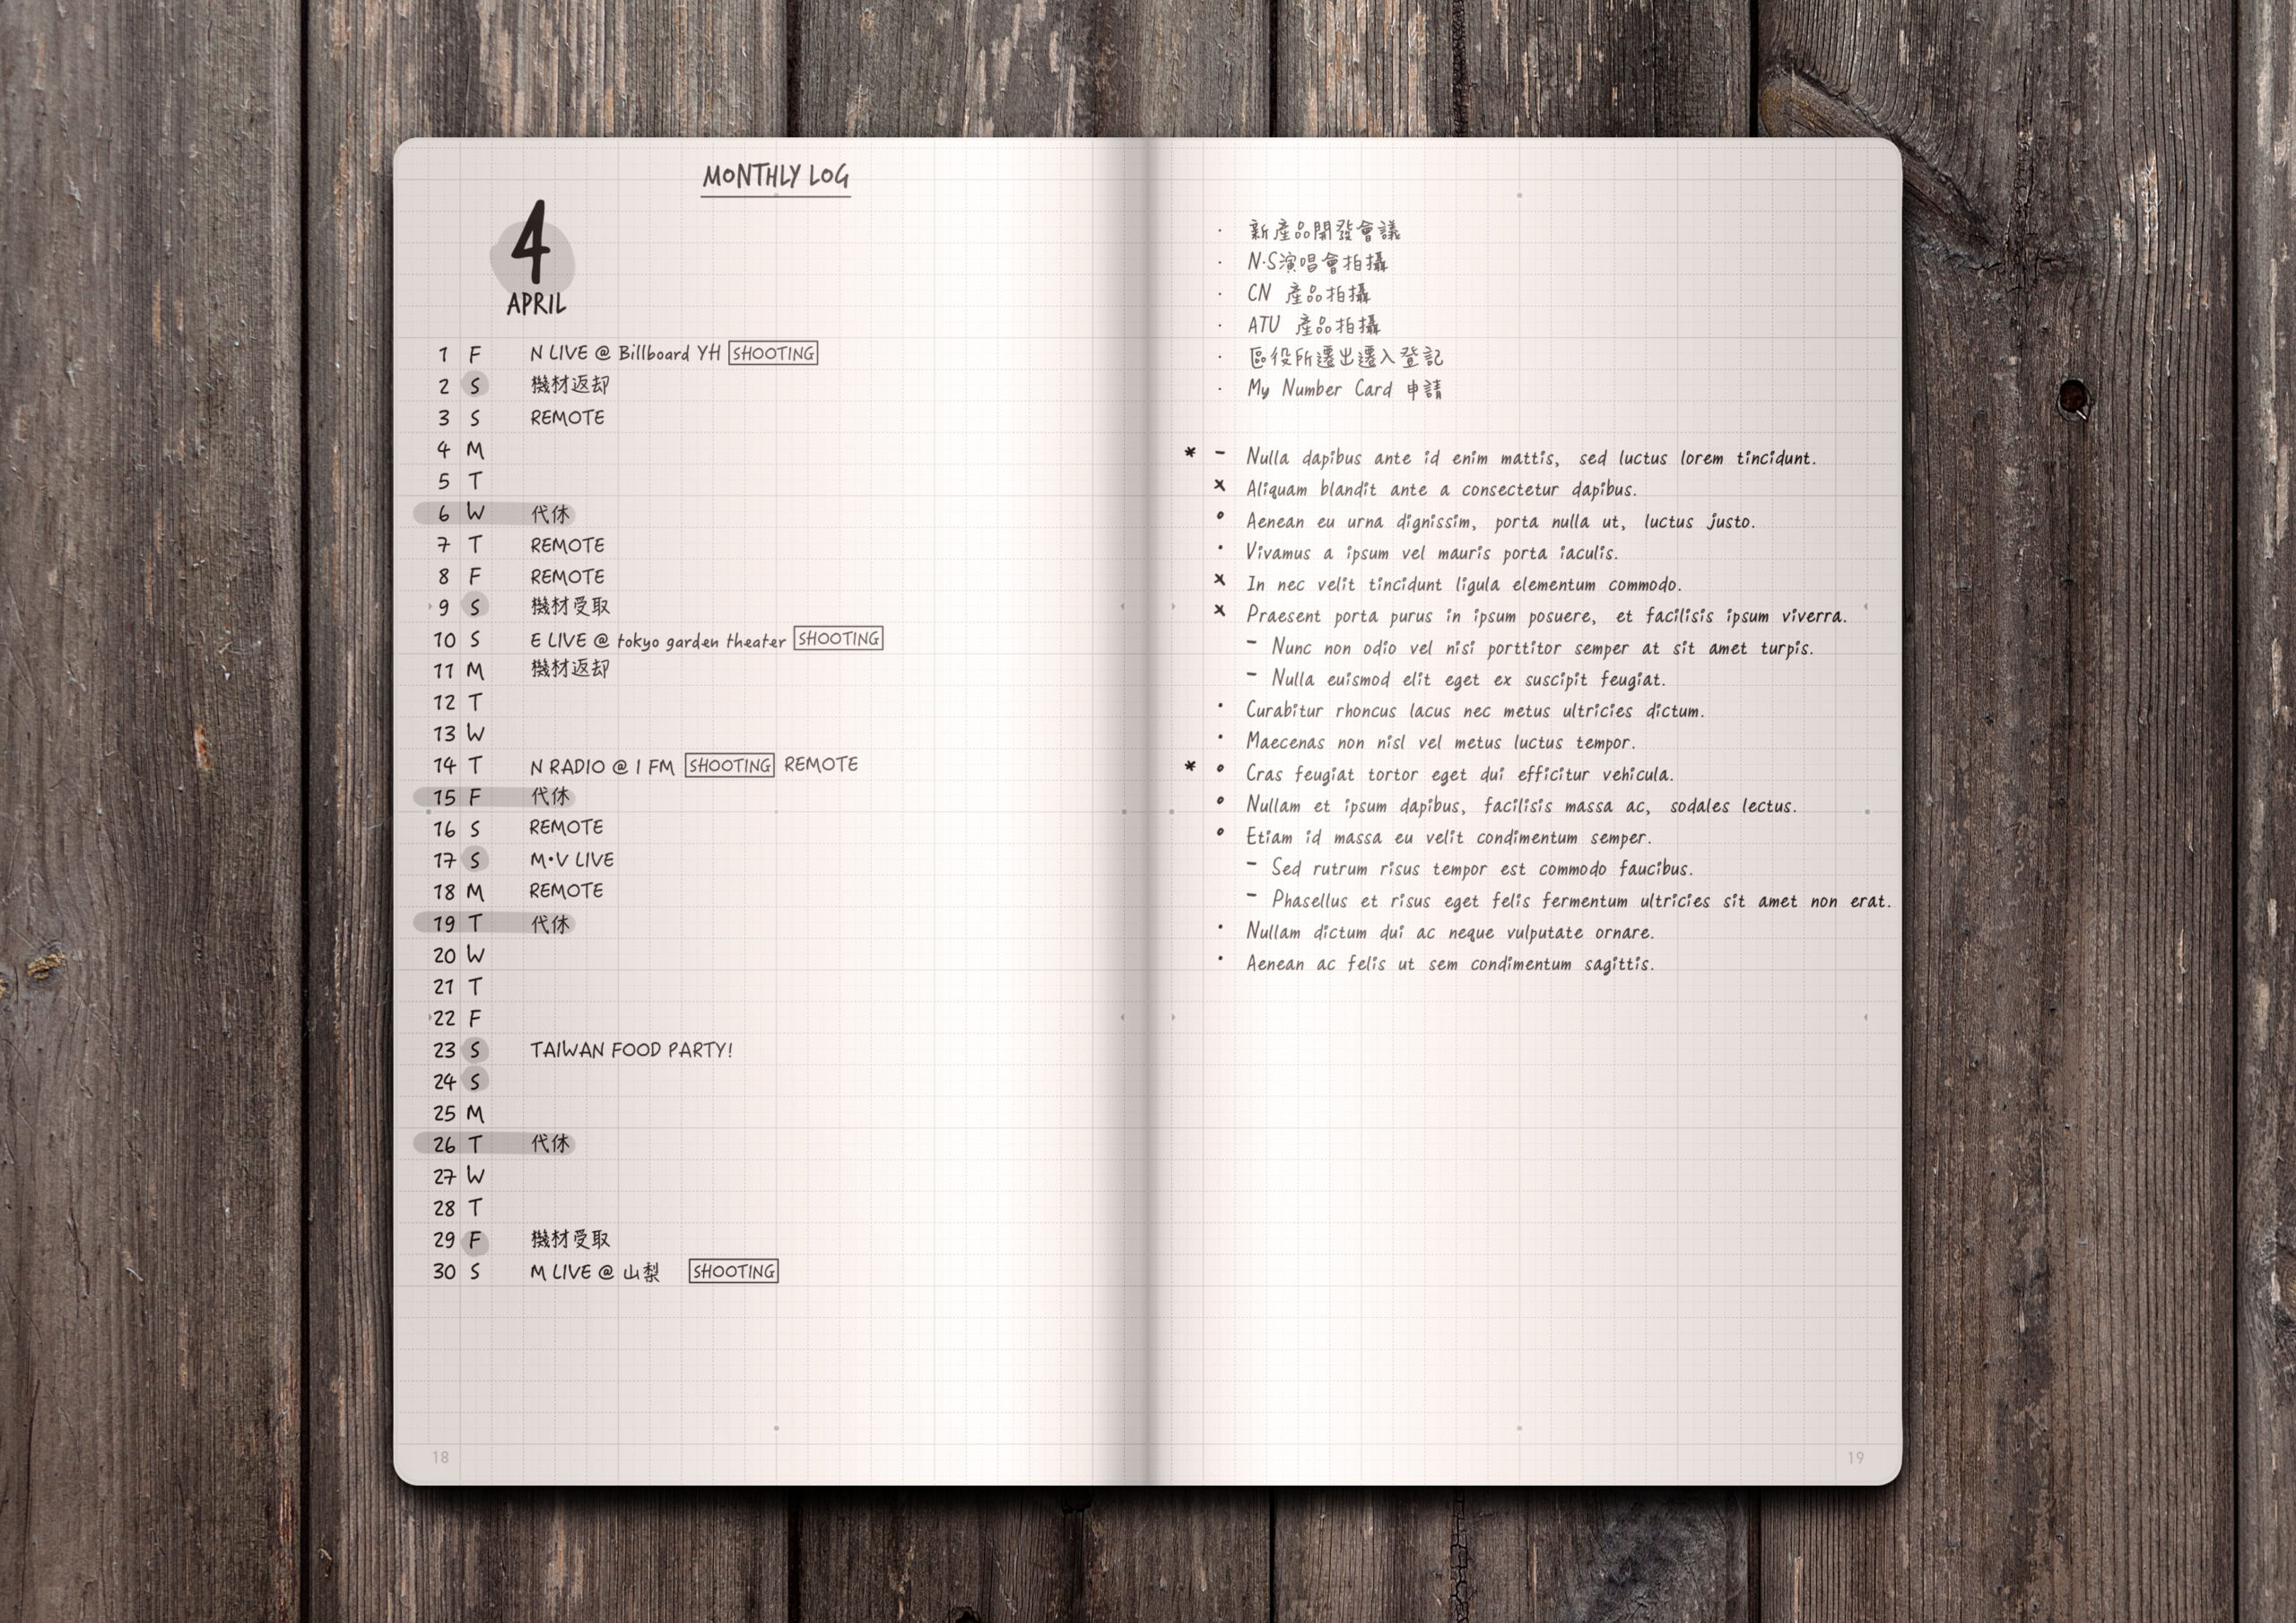 MONTHLY LOG
4
APRIL
1 F N LIVE @ Billboard YH SHOOTING
2 S 機材返却
3 S REMOTE
4 M
5 T
6 W 代休
7 T REMOTE
8 F REMOTE
9 S 機材受取
10 S E LIVE @ tokyo garden theater SHOOTING
11 M 機材返却
12 T
13 W
14 T N RADIO @ I FM SHOOTING REMOTE
15 F 代休
16 S REMOTE
17 S M•V LIVE
18 M REMOTE
19 T 代休
20 W
21 T
22 F
23 S TAIWAN FOOD PARTY!
24 S
25 M
26 T 代休
27 W
28 T
29 F 機材受取
30 S M LIVE @ 山梨 SHOOTING
18
· 新產品開發會議
· N·S演唱會拍攝
· CN 產品拍攝
· ATU 產品拍攝
· 區役所遷出遷入登記
· My Number Card 申請
* – Nulla dapibus ante id enim mattis, sed luctus lorem tincidunt.
x Aliquam blandit ante a consectetur dapibus.
° Aenean eu urna dignissim, porta nulla ut, luctus justo.
· Vivamus a ipsum vel mauris porta iaculis.
x In nec velit tincidunt ligula elementum commodo.
x Praesent porta purus in ipsum posuere, et facilisis ipsum viverra.
– Nunc non odio vel nisi porttitor semper at sit amet turpis.
– Nulla euismod elit eget ex suscipit feugiat.
· Curabitur rhoncus lacus nec metus ultricies dictum.
· Maecenas non nisl vel metus luctus tempor.
* ° Cras feugiat tortor eget dui efficitur vehicula.
° Nullam et ipsum dapibus, facilisis massa ac, sodales lectus.
° Etiam id massa eu velit condimentum semper.
– Sed rutrum risus tempor est commodo faucibus.
– Phasellus et risus eget felis fermentum ultricies sit amet non erat.
· Nullam dictum dui ac neque vulputate ornare.
· Aenean ac felis ut sem condimentum sagittis.
19